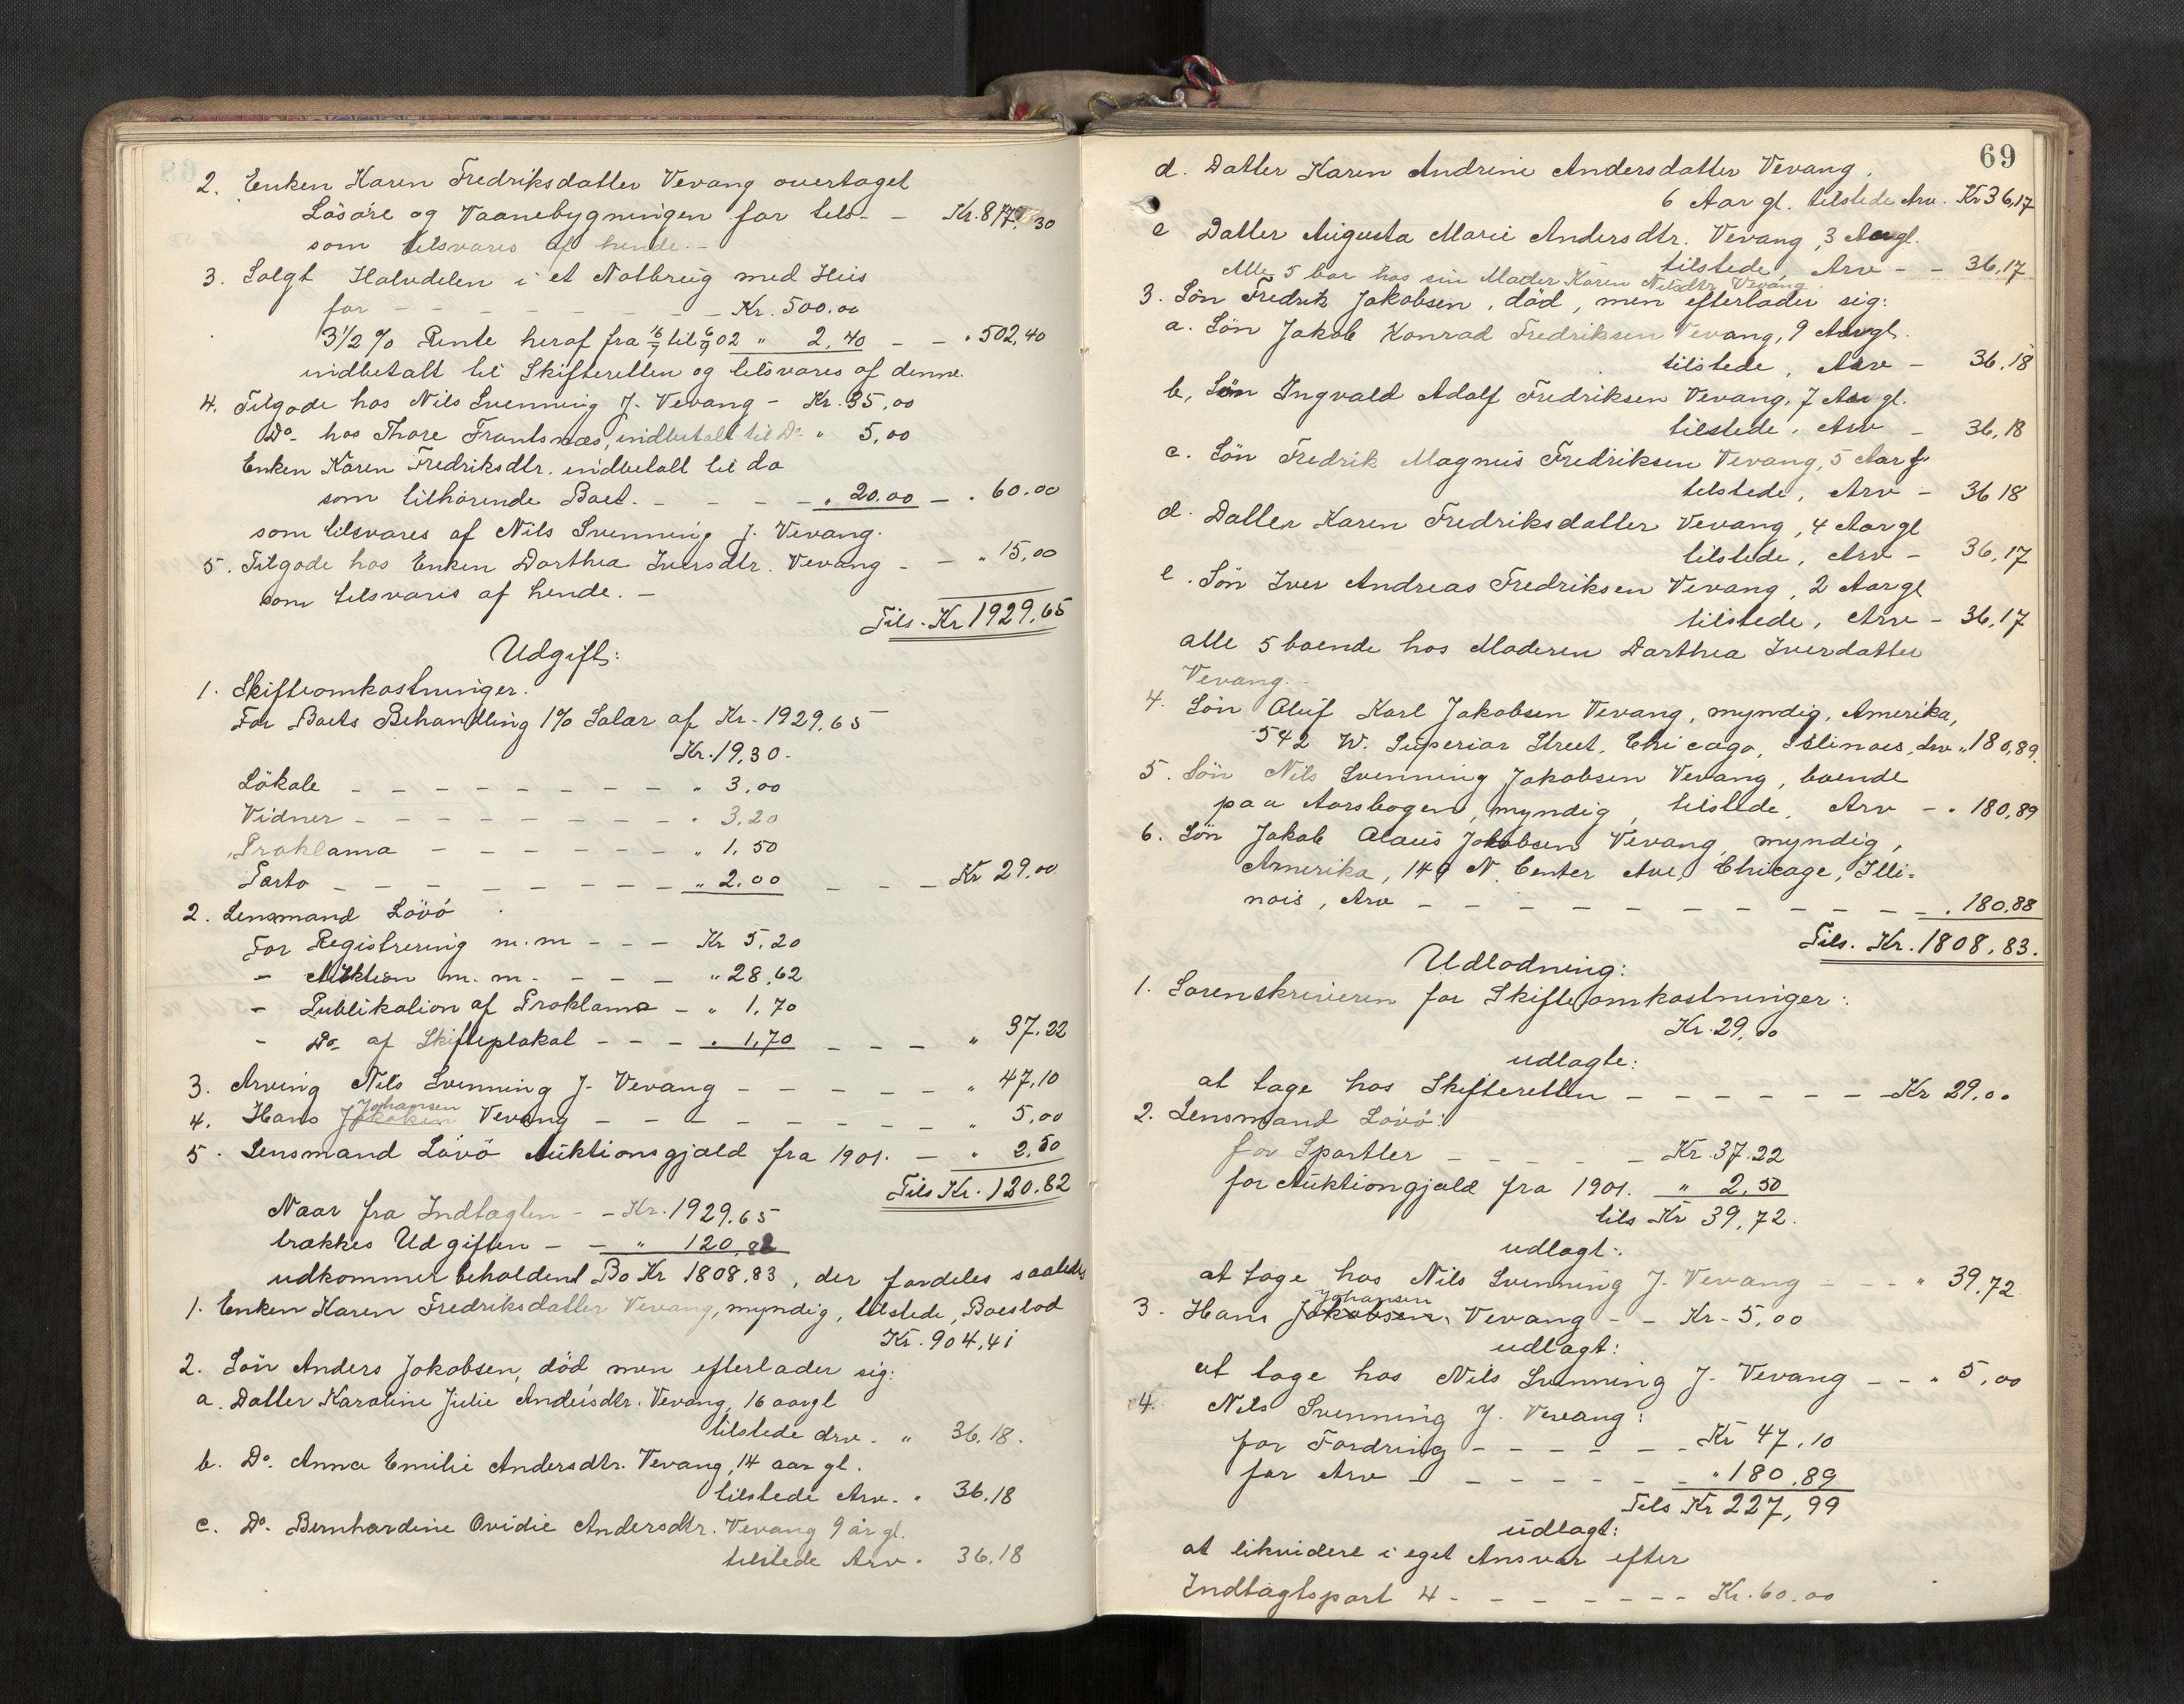 2. Enken Karen Fredriksdatter Vevang overtaget
Lösöre og Vaanebygningen for tils- - Kr. 877.30
som tilsvares af hende. -
3. Solgt Halvdelen i et Notbrug med Hus
for - - - - - - - Kr. 500.00
3 1/2 % Rente heraf fra 16/7 til 6/9 02 " 2,40 - - " 502,40
indbetalt til Skifteretten og tilsvares af denne.
4. Tilgode hos Nils Svenning J. Vevang - Kr. 35,00
Do- hos Thore Frantsnæs, indbetalt til Do " 5,00
Enken Karen Fredriksdtr. indbetalt til do
som tilhørende Boet. - - - - " 20.00 - " 60.00
som tilsvares af Nils Svenning J. Vevang.
5. Tilgode hos Enken Dorthea Iversdtr. Vevang - - " 15,00
som tilsvares af hende. -
Tils. Kr 1929,65
Udgift:
1. Skifteomkostninger.
For Boets Behandling 1% Salær af Kr. 1929,65
Kr. 19,30.
Lokale - - - - - - - - " 3,00
Vidner - - - - - - - - " 3,20
Proklama - - - - - - " 1,50
Porto - - - - - - - - " 2.00 - - - Kr 29.00
2. Lensmand Lövö
For Registrering m.m - - - Kr 5,20
- Auktion m. m. - - - - " 28,62
- Publikation af Proklama - " 1,70
- Do- af Skifteplakat - - - " 1,70 - - - " 37.22
3. Arving Nils Svenning J. Vevang - - - - - " 47,10
Johansen
4. Hans Jakobsen Vevang - - - - - - - " 5,00
5. Lensmand Lövö Auktionsgjæld fra 1901. - " 2,50
Tils Kr. 120.82
Naar fra Indtægten - - Kr. 1929.65
trækkes Udgiften - - " 120,82
udkommer beholdent Bo Kr 1808.83, der fordeles saaledes
1. Enken Karen Fredriksdatter Vevang, myndig, tilstede, Boeslod
Kr. 904,41
2. Sön Anders Jakobsen, död men efterlader sig:
a. Datter Karoline Julie Andersdtr. Vevang, 16 aargl
tilstede Arv. " 36.18.
b. Do. Anna Emilie Andersdtr. Vevang, 14 aar gl.
tilstede Arv. " 36.18
c. Do. Bernhardine Ovidie Andersdtr. Vevang 9 år gl.
tilstede Arv. 36.18
69
d. Datter Karen Andrine Andersdatter Vevang.
6 Aar gl. tilstede Arv. Kr 36,17
e Datter Augusta Marie Andersdtr. Vevang, 3 Aargl.
tilstede, Arv - - 36,17
Alle 5 bor hos sin Moder Karen Nilsdtr Vevang.
3. Sön Fredrik Jakobsen, död, men efterlader sig:
a. Sön Jakob Konrad Fredriksen Vevang, 9 Aargl.
tilstede, Arv - 36,18
b, Sön Ingvald Adolf Fredriksen Vevang, 7 Aar gl.
tilstede, Arv - 36,18
c. Sön Fredrik Magnus Fredriksen Vevang, 5 Aar gl
tilstede, Arv - 36 18
d. Datter Karen Fredriksdatter Vevang, 4 Aargl
tilstede, Arv - 36,17
e. Sön Iver Andreas Fredriksen Vevang, 2 Aargl
tilstede, Arv - 36,17
alle 5 boende hos Moderen Dorthea Iverdatter
Vevang. -
4. Sön Oluf Karl Jakobsen Vevang, myndig, Amerika,
542 W. Superior Street, Chicago, Islinois, Arv " 180,89.
5. Sön Nils Svenning Jakobsen Vevang, boende
paa Aarsbogen, myndig, tilstede, Arv - " 180,89
6. Sön Jakob Olaus Jakobsen Vevang, myndig,
Amerika, 149 N. Center Ave, Chicage, Illi-
nois, Arv - - - - - - - - - - - " 180,88
Tils. Kr. 1808.83.
Udlodning:
1. Sorenskriveren for Skifteomkostninger:
Kr. 29,00
udlagte:
at tage hos Skifteretten - - - - - - Kr 29.00
2. Lensmand Lövö:
for Sportler - - - - - Kr. 37.22
for Auktiongjæld fra 1901. " 2,50
tils Kr 39,72.
udlagt:
at tage hos Nils Svenning J. Vevang - - - " 39.72
Johansen
3. Hans Jakobsen, Vevang - - Kr. 5,00
udlagt:
at tage hos Nils Svenning J. Vevang - - " 5,00
4. Nils Svenning J. Vevang:
for Fordring - - - - - - Kr 47,10
for Arv - - - - - - - " 180,89
Tils Kr 227,99
udlagt:
at likvidere i eget Ansvar efter
Indtægtspost 4 - - - - - - - Kr. 60.00